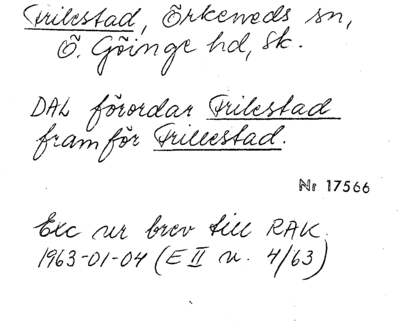 Trilestad, Örkeneds sn,
Ö. Göinge hd, Sk.
DAL förordar Trilestad
framför Trillestad.
Nr 17566
Exc ur brev till RAK
1963-01-04 (E II n. 4/63)